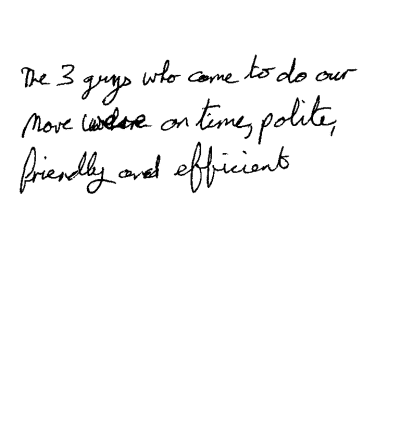 The 3 guys who come to do our
move were on time, polite,
friendly and efficient